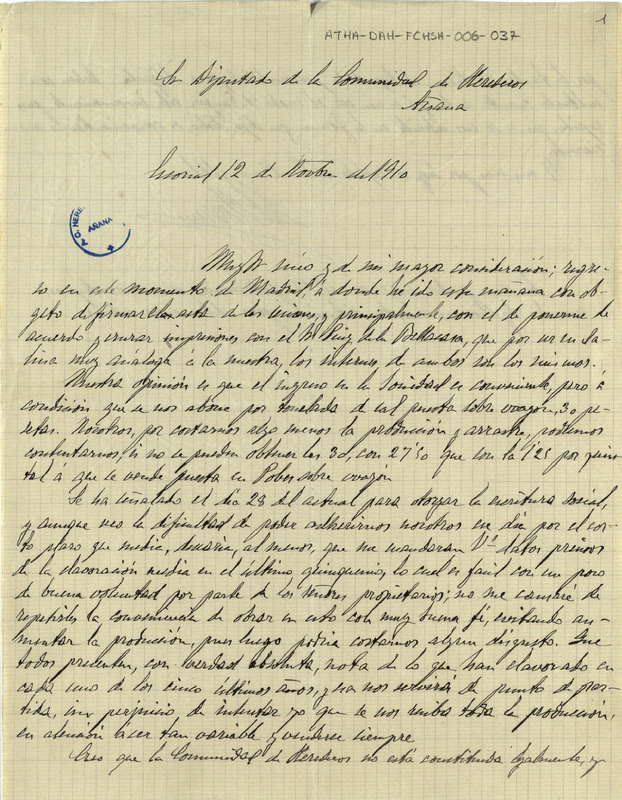 1
ATHA-DAH-FCHSA-006-037
Sr Diputado de la Comunidad de Herederos
Añana
Escorial 12 de Novbre de 1910
A.C. HERE
AÑANA
Muy Sr mio y de mi mayor consideración; regre-
so en este momento de Madrid, á donde he ido esta mañana con ob-
geto de firmar el acta de las sesiones, y principalmente, con el de ponerme de
acuerdo y cruzar impresiones con el Sr Ruiz de la Bellacasa, que por ser su Sa-
lina muy análoga á la nuestra, los intereses de ambos son los mismos.
Nuestra opinión es que el ingreso en la Sociedad es conveniente, pero á
condición que se nos abone por tonelada de sal puesta sobre vagón, 30 pe-
setas. Nosotros, por costarnos algo menos la producción y arrastre, podemos
contentarnos si no se pueden obtener las 30, con 27'50 que con la 1'25 por quin-
tal á que se vende puesta en Pobes sobre vagón
Se ha señalado el dia 28 del actual para otorgar la escritura social,
y aunque veo la dificultad de poder adherirnos nosotros ese dia por el cor-
to plazo que media, desearia, al menos, que me mandaran Vs datos precisos
de la elavoración media en el último quinquenio, lo cual es facil con un poco
de buena voluntad por parte de los Señores propietarios; no me cansaré de
repetirles la conveniencia de obrar en esto con muy buena fé, evitando au-
mentar la producción, pues luego podria costarnos algun disgusto. Que
todos presenten, con verdad absoluta, nota de lo que han elavorado en
cada uno de los cinco últimos años, y esa nos servirá de punto de par-
tida, sin perjuicio de intentar yo que se nos reciba toda la producción,
en atención á ser tan variable y venderse siempre
Creo que la Comunidad de Herederos no está constituida legalmente, y